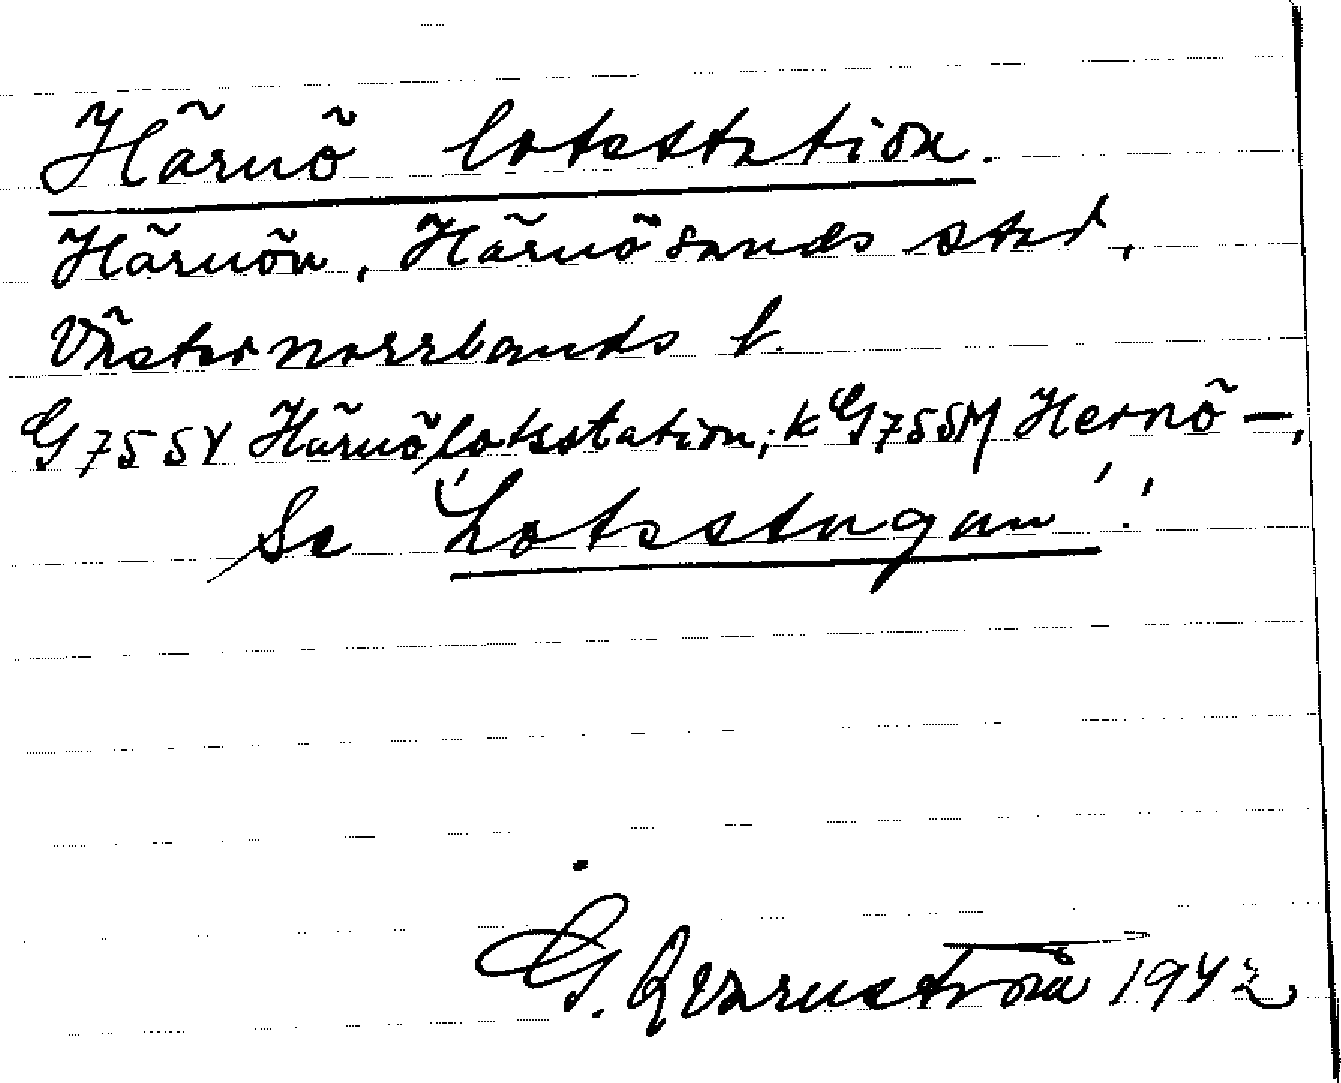 Härnö lotsstation.
Härnön, Härnösands stad,
Västernorrlands l.
G 75 SV Härnö lotsstation; k G 75 SM Hernö —,
Se "Lotsstugan"!
G. Qvarnström 1942